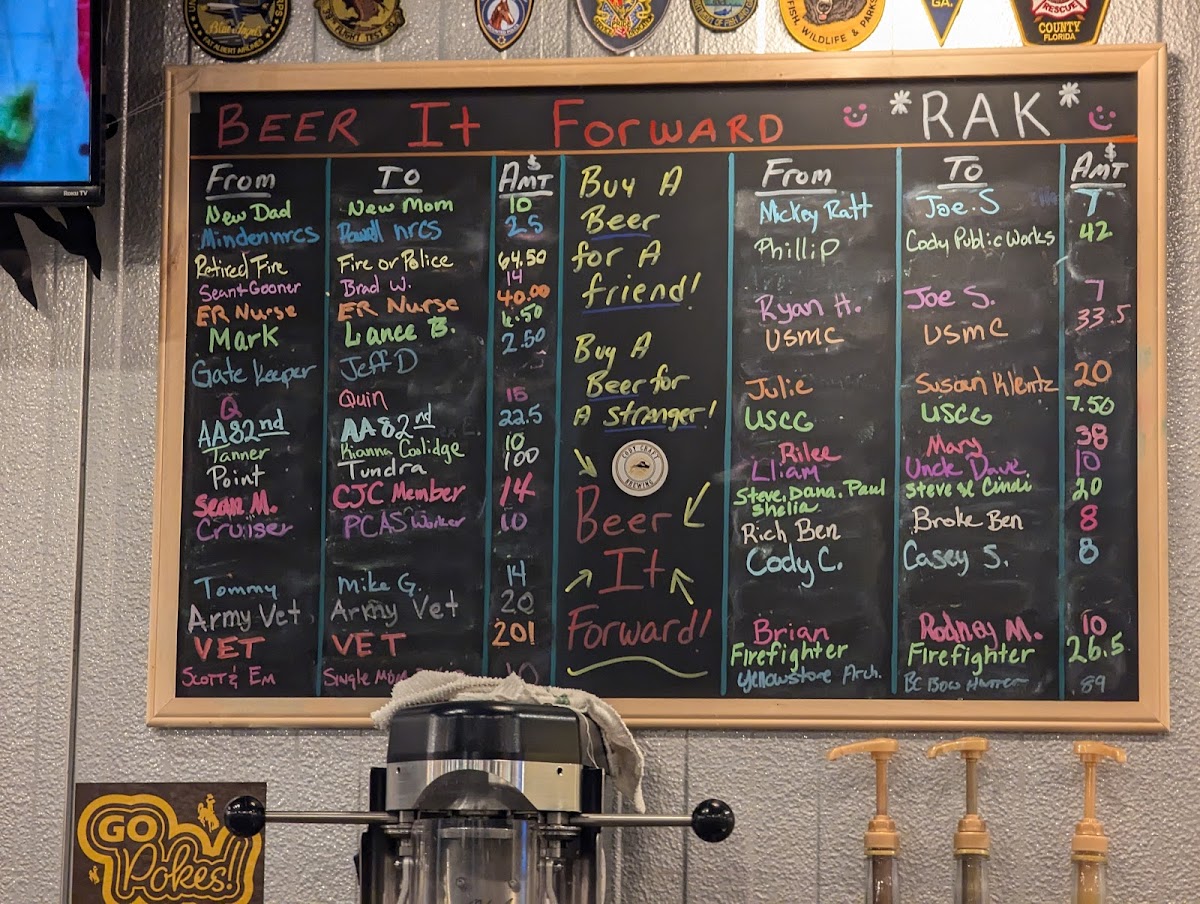 Blue Angels
FAT ALBERT AIRLINES
FLIGHT TEST
FISH, WILDLIFE & PARKS
GA.
RESCUE
COUNTY
FLORIDA
Roku TV
BEER It FORWARD *RAK*
From To $ AMT
New Dad New Mom 10
Mindennrcs Powell nrcs 2.5
Retired Fire Fire or Police 64.50
Sean+Gooner Brad W. 14
ER Nurse ER Nurse 40.00
Mark Lance B. 6.50
Gate Keeper Jeff D 2.50
Q Quin 15
AA82nd AA82nd 22.5
Tanner Kianna Coolidge 10
Point Tundra 100
Sean M. CJC Member 14
Cruiser PCAS Worker 10
Tommy Mike G. 14
Army Vet Army Vet 20
VET VET 201
SCOTT & EM SINGLE MOM 10
Buy A
Beer
for A
friend!
Buy A
Beer for
A stranger!
CODY CRAFT
BREWING
Beer
It
Forward!
From To $ AMT
Mickey Ratt Joe.S 7
Phillip Cody Public Works 42
Ryan H. Joe S. 7
USMC USMC 33.5
Julie Susan Klentz 20
USCG USCG 7.50
Rilee Mary 38
Lliam Uncle Dave 10
Steve, Dana. Paul Steve & Cindi 20
Shelia
Rich Ben Broke Ben 8
Cody C. Casey S. 8
Brian Rodney M. 10
Firefighter Firefighter 26.5
Yellowstone Arch. BC Bow Hunter 89
GO
Pokes!